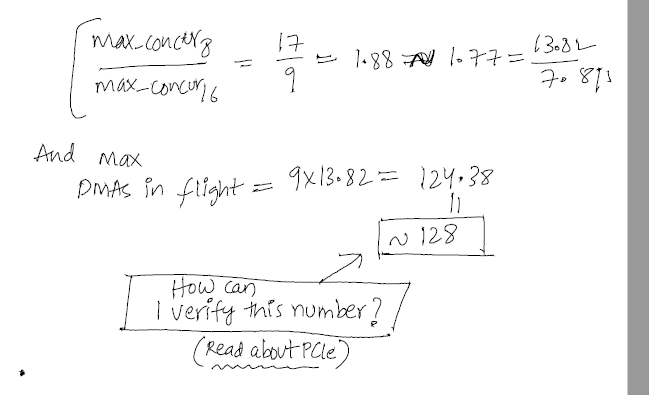 max_concur8 / max_concur16 = 17/9 = 1.88 ≈ 1.77 = 13.82 /
And max
DMAs in flight = 9x13.82 = 124.38
~ 128
How can
I verify this number?
(Read about PCIe)